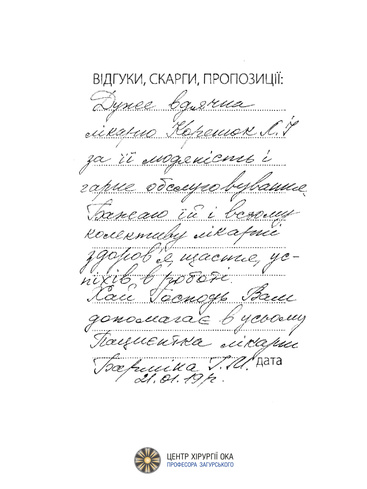 ВІДГУКИ, СКАРГИ, ПРОПОЗИЦІЇ:
Дуже вдячна
лікарю Корешюк Л.І
за її людяність і
гарне обслуговування.
Бажаю їй і всьому
колективу лікарні
здоров'я, щастя, ус-
піхів в роботі.
Хай Господь Вам
допомагає в усьому
Пацієнтка лікарні
Барміна Г.И. дата
21.01.19р.
ЦЕНТР ХІРУРГІЇ ОКА
ПРОФЕСОРА ЗАГУРСЬКОГО